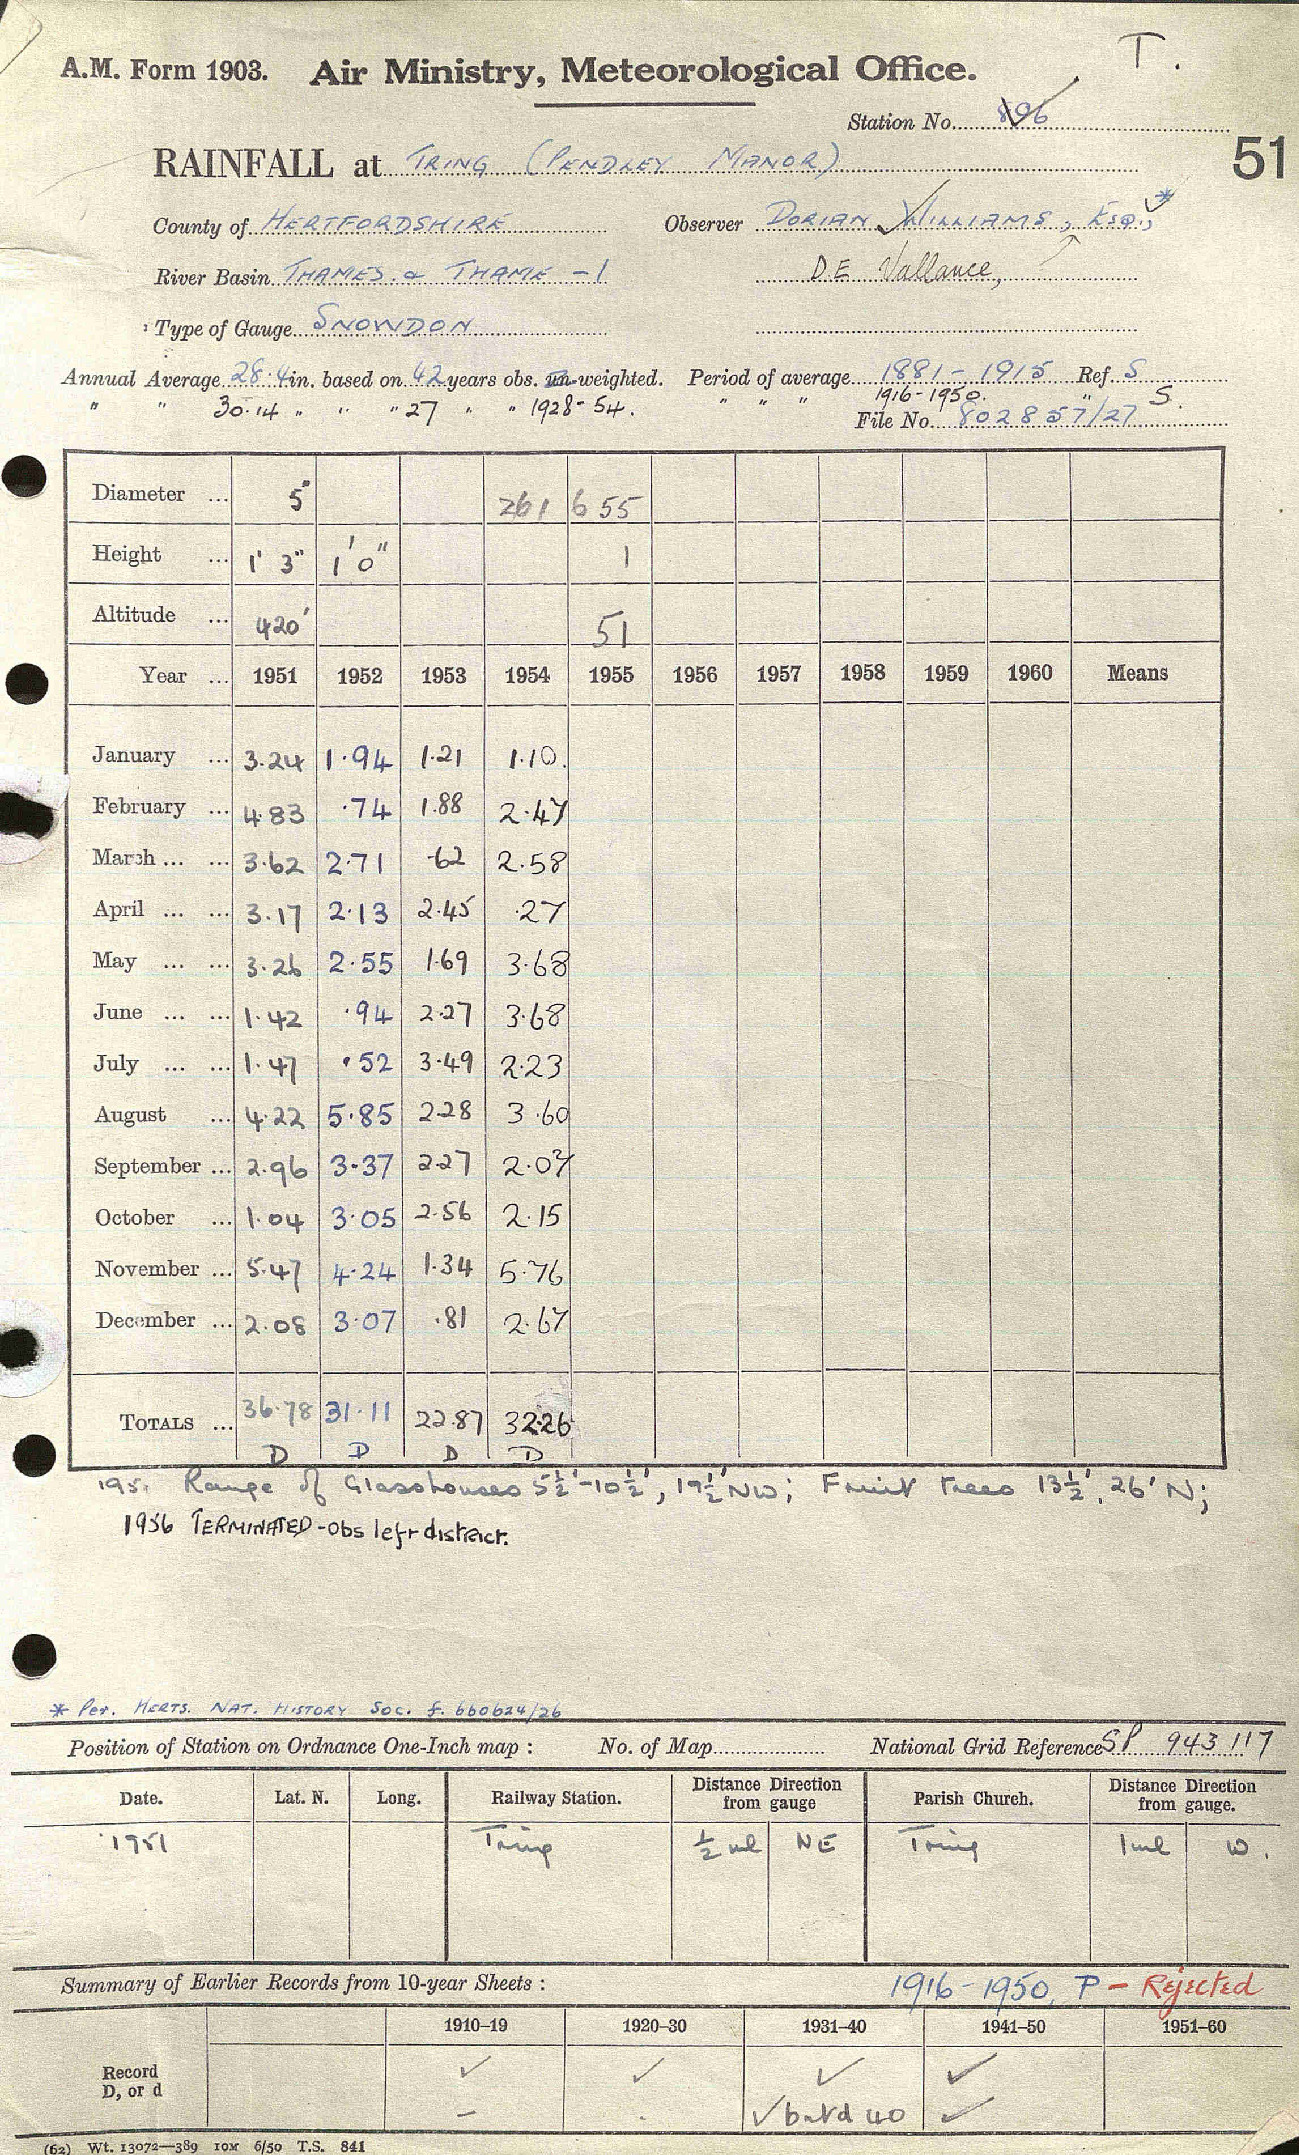 T.
A.M. Form 1903. Air Ministry, Meteorological Office.
Station No. 896
RAINFALL at TRING (PENDLEY MANOR)
51
County of HERTFORDSHIRE Observer DORIAN WILLIAMS, ESQ., *
River Basin THAMES & THAME -1 D.E Vallance,
Type of Gauge SNOWDON
Annual Average 28.4 in. based on 42 years obs. un-weighted. Period of average 1881-1915 Ref. S
" " 30.14 " " " 27 " " 1928-54. " " " 1916-1950. " S.
File No. 802857/27
Diameter ... 5" 261 655
Height ... 1' 3" 1' 0" 1
Altitude ... 420' 51
Year ... 1951 1952 1953 1954 1955 1956 1957 1958 1959 1960 Means
January ... 3.24 1.94 1.21 1.10.
February ... 4.83 .74 1.88 2.47
March ... ... 3.62 2.71 .62 2.58
April ... ... 3.17 2.13 2.45 .27
May ... ... 3.26 2.55 1.69 3.68
June ... ... 1.42 .94 2.27 3.68
July ... ... 1.47 .52 3.49 2.23
August ... 4.22 5.85 2.28 3.60
September ... 2.96 3.37 2.27 2.07
October ... 1.04 3.05 2.56 2.15
November ... 5.47 4.24 1.34 5.76
December ... 2.08 3.07 .81 2.67
TOTALS ... 36.78 31.11 22.87 32.26
D D D D
195. Range of Glasshouses 5½'-10½', 19½' NW; Fruit trees 13½', 26' N;
1956 TERMINATED - obs left district.
* Per. HERTS. NAT. HISTORY Soc. f. 660624/26
Position of Station on Ordnance One-Inch map : No. of Map National Grid Reference SP 943 117
Date. Lat. N. Long. Railway Station. Distance Direction from gauge Parish Church. Distance Direction from gauge.
1951 Tring ½ ml NE Tring 1 ml W.
Summary of Earlier Records from 10-year Sheets : 1916-1950, P - Rejected
1910–19 1920–30 1931–40 1941–50 1951–60
Record ✓ ✓ ✓ ✓
D, or d – . ✓ but d 40 ✓
(62) Wt. 13072—389 10M 6/50 T.S. 841